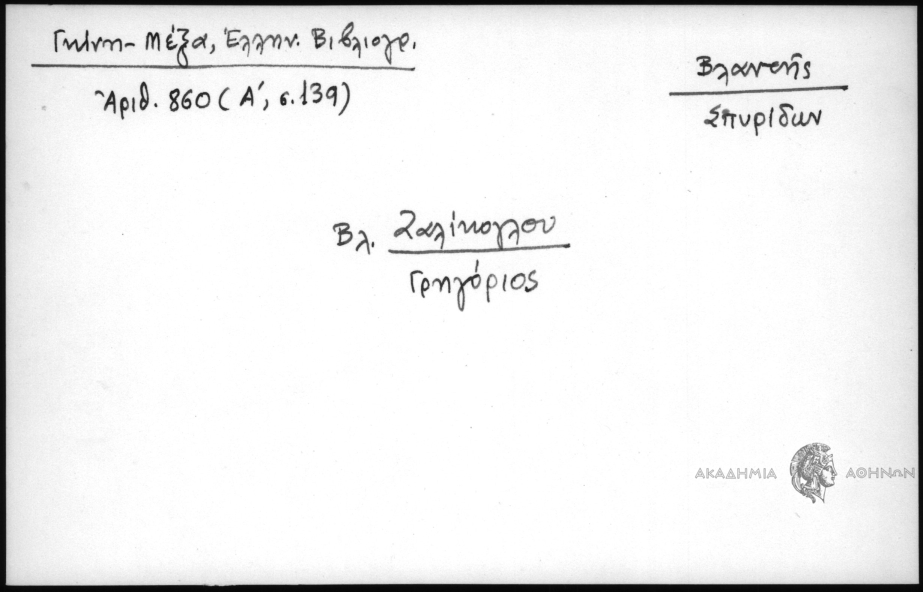 Γκίνη - Μέξα, Ἑλλην. Βιβλιογρ.
Ἀριθ. 860 (Α΄, σ. 139)
Βλαντῆς
Σπυρίδων
Βλ. Ζαλίκογλου
Γρηγόριος
ΑΚΑΔΗΜΙΑ ΑΘΗΝΩΝ